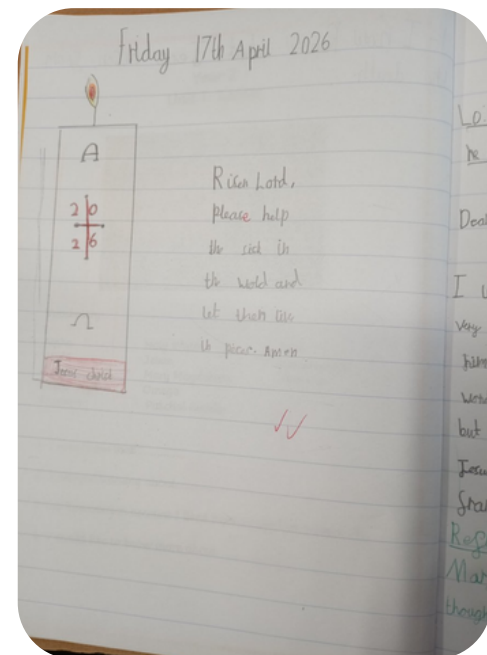 Friday 17th April 2026
A
2 0
2 6
Ω
Jesus christ
Risen Lord,
please help
the sick in
the world and
let them live
in peace. Amen
Lo
he
Dea
I
very
him
were
but
Jesu
Mar
though